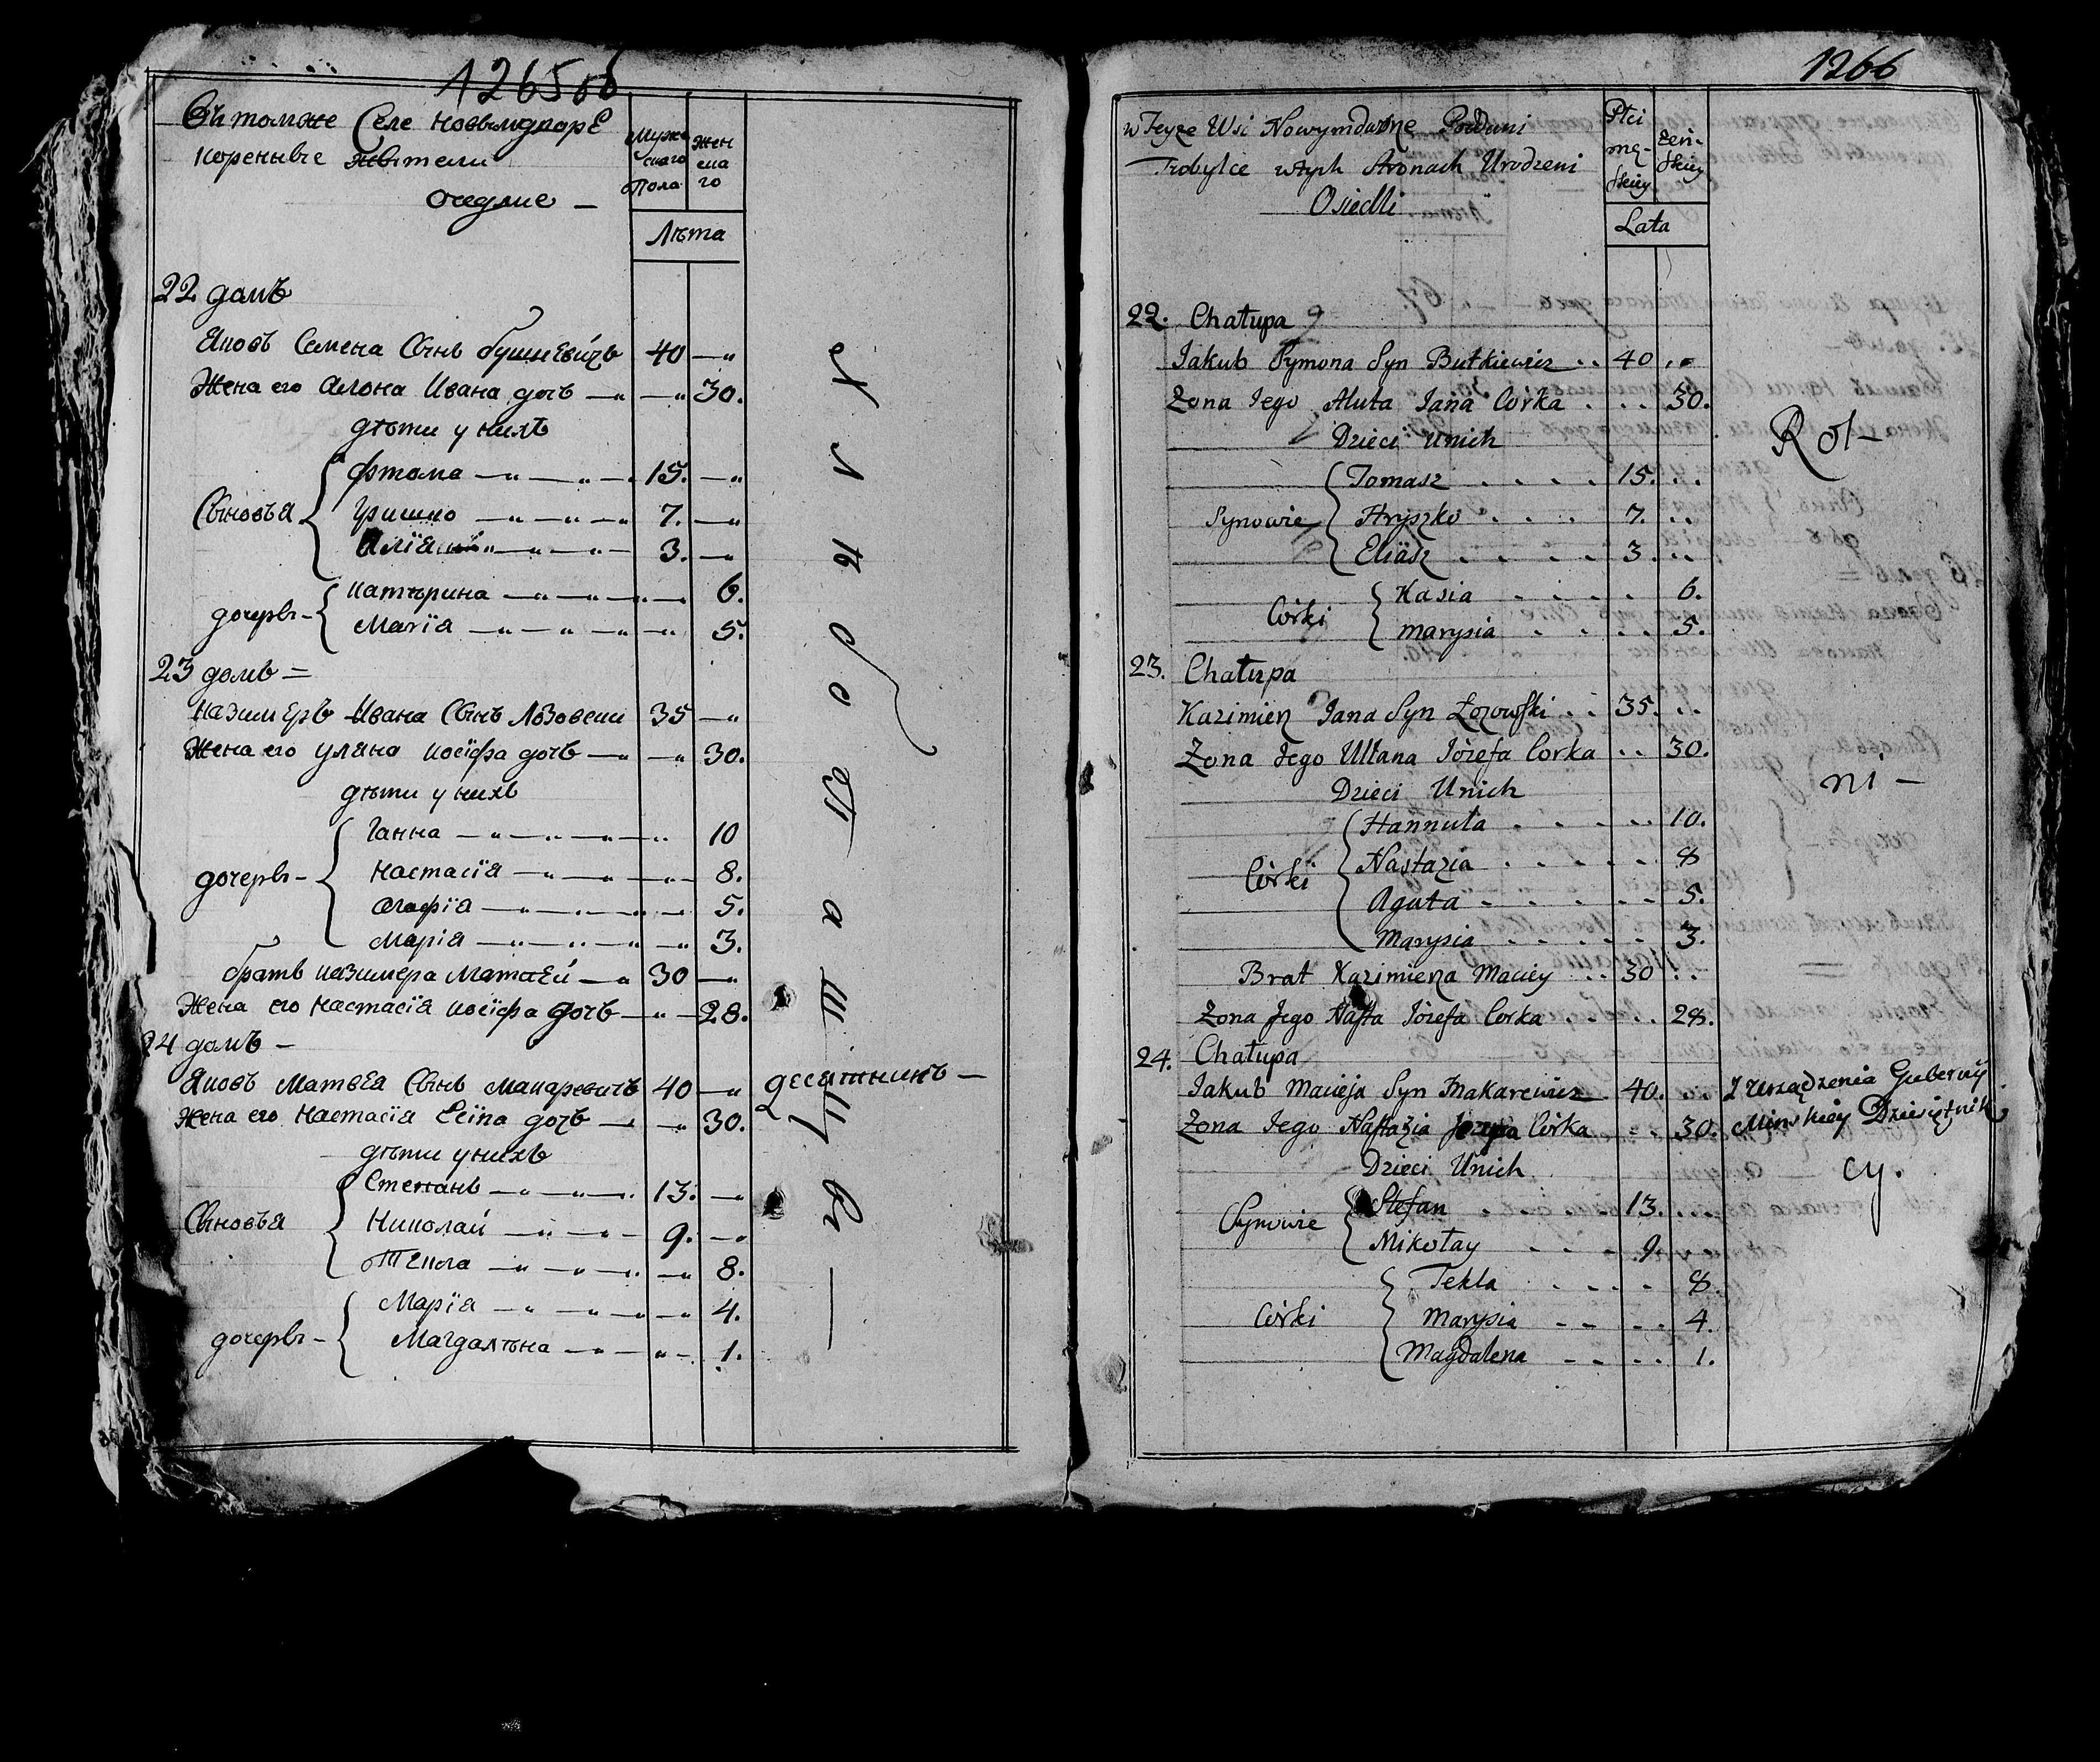 1265об
Въ томже Селе новымдворѣ
коренные жители
оседлие —
Мужескаго Пола
женскаго
Лѣта
22 домъ
Яковъ Семена Сынъ буткевичъ 40 —„
Жена его Алона Ивана дочь —„ —„ 30.
дѣти у нихъ
Сыновья
фтома —„—„— 15. —„
Гришко —„—„—„ 7. —„
—„—„— 3. —„
дочеры –
катѣрина —„—„—„— 6.
Магія —„—„—„—„ 5.
23 домъ =
казимеръ Ивана Сынъ Лозовски 35 —„
Жена его уляна иосифа дочь —„ —„ 30.
дѣти у нихъ
дочеры –
Ганна —„—„—„ 10
Настасія —„—„—„— 8.
агафія —„—„—„— 5.
Марія —„—„—„—„ 3.
братъ казимера Матвей —„ 30 —„
Жена его Настасія иосифа дочь —„— 28.
24 домъ –
Яковъ Матвея Сынъ макаревичъ 40 —„ десятникъ —
Жена его Настасія Есипа дочь —„ —„ 30.
дѣти у нихъ
Сыновья
Степанъ —„—„—„ 13. —„
Николай —„—„— 9. —„
Текла —„—„—„ —„ 8.
дочеры –
Марія —„—„—„—„ 4.
Магдалѣна —„—„— 1.
1266
w Teyze Wsi Nowymdworze Poddani
Trobylce wtych Stronach Urodzeni
Osiedli
Płci męskiey
żeńskiey
Lata
22. Chałupa
Jakub Symona Syn Butkiewicz . . 40 . .
Zona Jego Aluta Jana Córka . . . 30.
Dzieci unich
Synowie
Tomasz . . . . 15. . .
Hryszko . . . 7. . .
Eliasz . . . . 3. . .
Córki
Kasia . . . . . 6.
Marysia . . . . 5.
23. Chałupa
Kazimierz Jana Syn Łozowski . . 35. . .
Zona Jego Ullana Józefa Corka . . 30.
Dzieci Unich
Córki
Hannuta . . . . . 10.
Nastazia . . . . . 8
Aguta . . . . . . 5.
Marysia . . . . . 3.
Brat Kazimierza Maciey . . 30 . .
Zona Jego Nasta Józefa Corka . . . . 28.
24. Chałupa
Jakub Macieja Syn Makarewicz . 40. Z Urządzenia Guberniy
Zona Jego Nastazia Jozepa Córka . . 30. Minskiey Dziesiętnik
Dzieci Unich
Synowie
Stefan . . . 13. . .
Mikołay . . . 9.
Córki
Tekla . . . . 8.
Marysia . . . . 4.
Magdalena . . . . 1.
Rol–
ni –
cy.